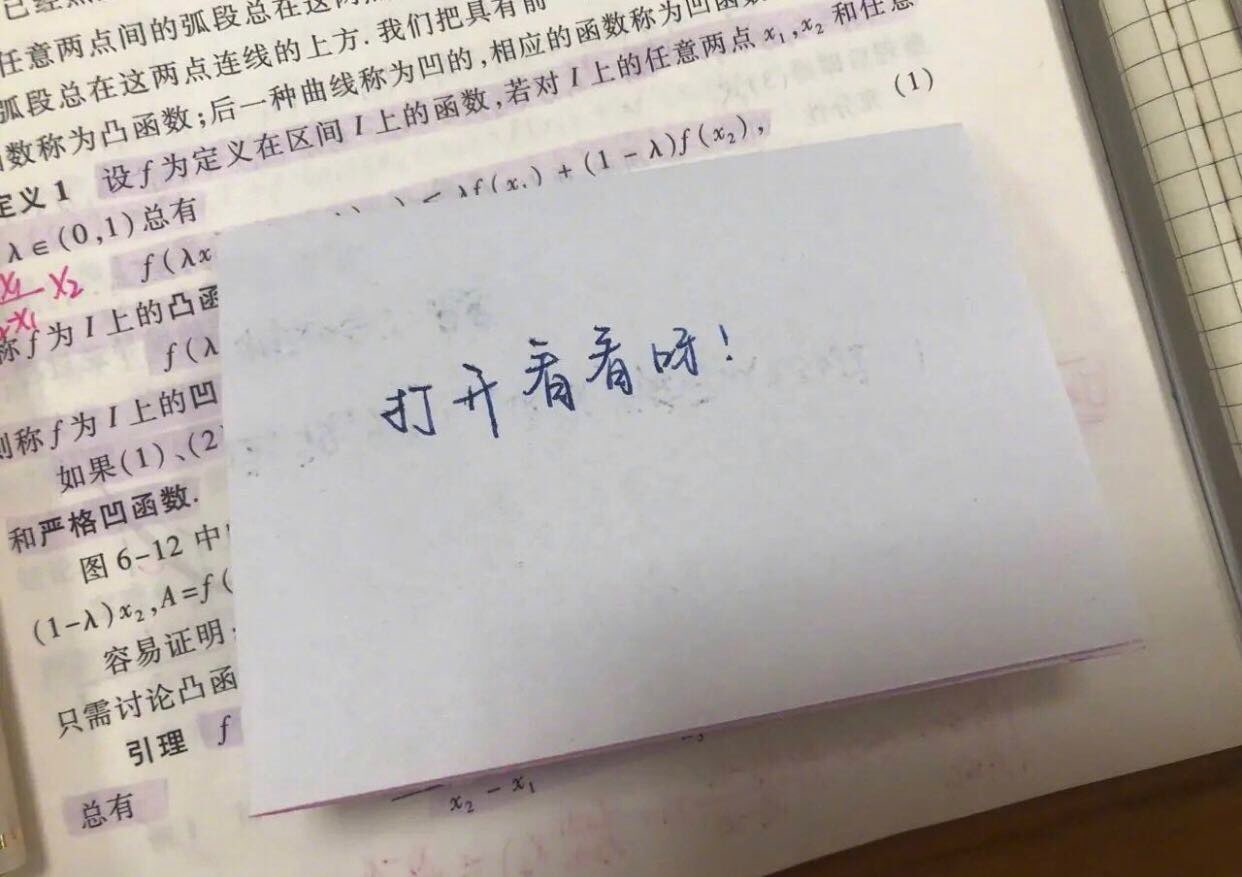 任意两点间的弧段总在这两点
弧段总在这两点连线的上方.我们把具有前
数称为凸函数;后一种曲线称为凹的,相应的函数称为凹函数
定义1 设f为定义在区间I上的函数,若对I上的任意两点x₁,x₂和任意
λ∈(0,1)总有
f(λx
+(1-λ)f(x₂), (1)
x₂
称f为I上的凸函
f(λ
则称f为I上的凹
如果(1)、(2
和严格凹函数.
图6-12中
(1-λ)x₂,A=f(
容易证明:
只需讨论凸函
引理 f
总有
x₂-x₁
打开看看呀!